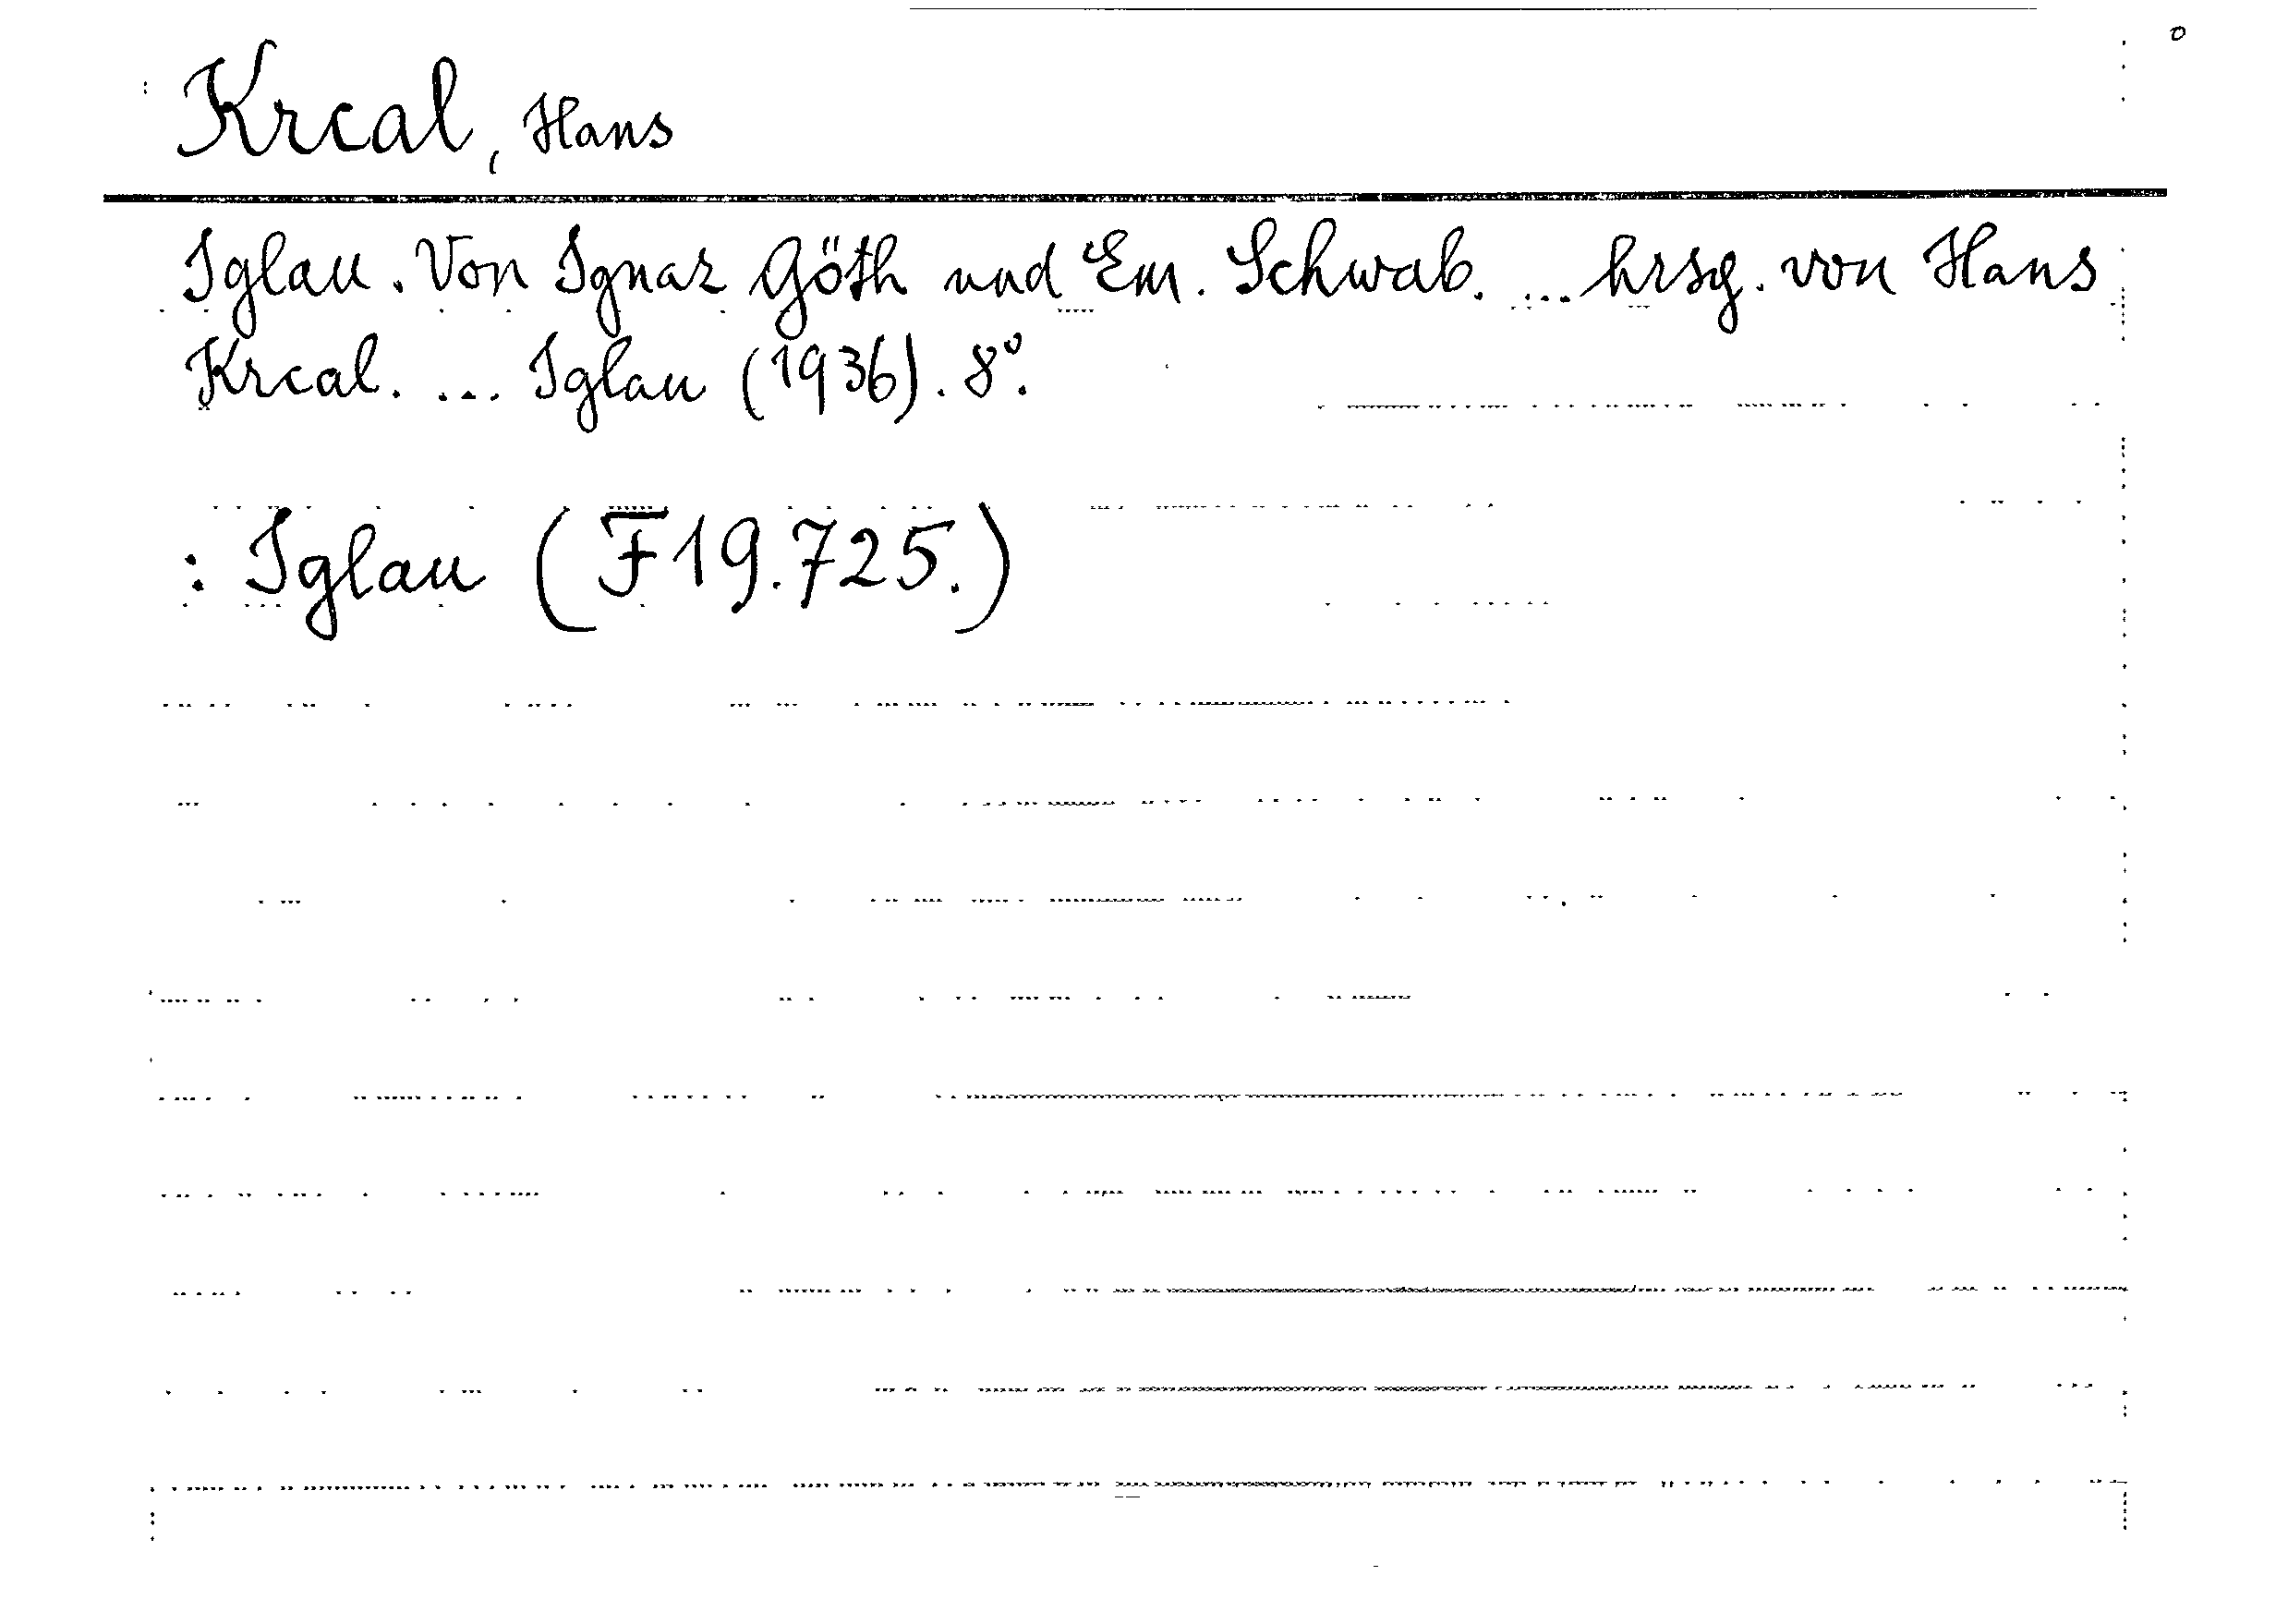 Krcal, Hans
Iglau. Von Ignaz Göth und Em. Schwab. ... hrsg. von Hans
Krcal. ... Iglau (1936). 8°.
: Iglau (F19.725.)